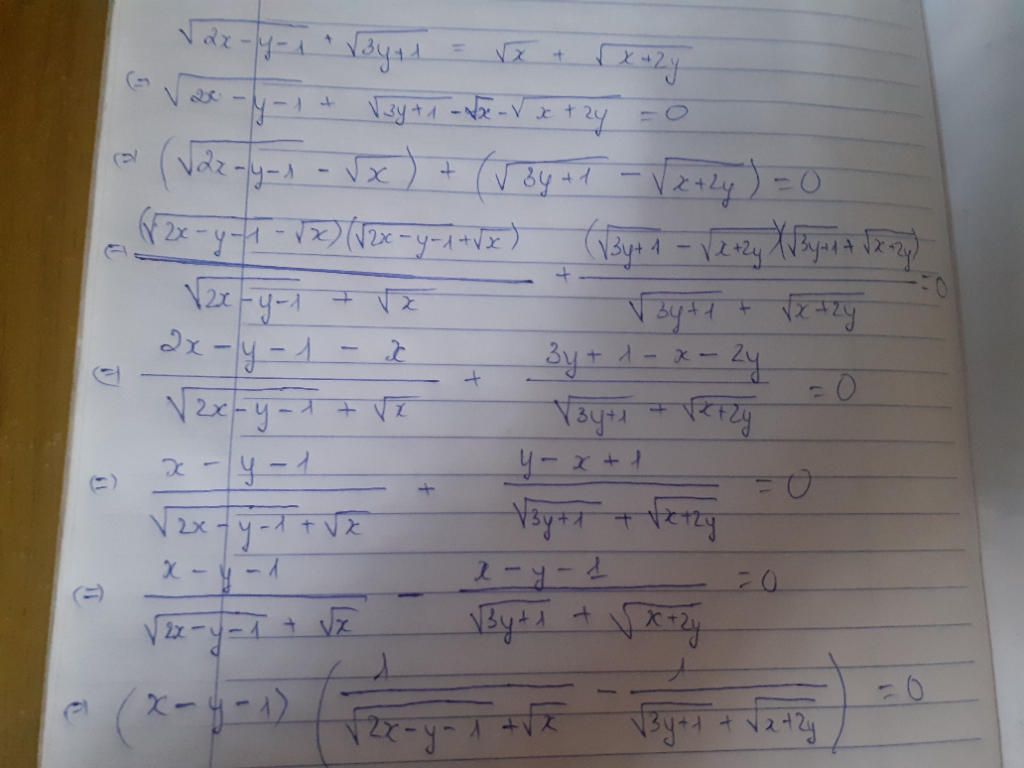 √(2x-y-1) + √(3y+1) = √x + √(x+2y)
(=) √(2x-y-1) + √(3y+1) - √x - √(x+2y) = 0
(=) (√(2x-y-1) - √x) + (√(3y+1) - √(x+2y)) = 0
(=) (√(2x-y-1) - √x)(√(2x-y-1) + √x) / (√(2x-y-1) + √x) + (√(3y+1) - √(x+2y))(√(3y+1) + √(x+2y)) / (√(3y+1) + √(x+2y)) = 0
(=) (2x-y-1-x) / (√(2x-y-1) + √x) + (3y+1-x-2y) / (√(3y+1) + √(x+2y)) = 0
(=) (x-y-1) / (√(2x-y-1) + √x) + (y-x+1) / (√(3y+1) + √(x+2y)) = 0
(=) (x-y-1) / (√(2x-y-1) + √x) - (x-y-1) / (√(3y+1) + √(x+2y)) = 0
(=) (x-y-1) (1 / (√(2x-y-1) + √x) - 1 / (√(3y+1) + √(x+2y))) = 0